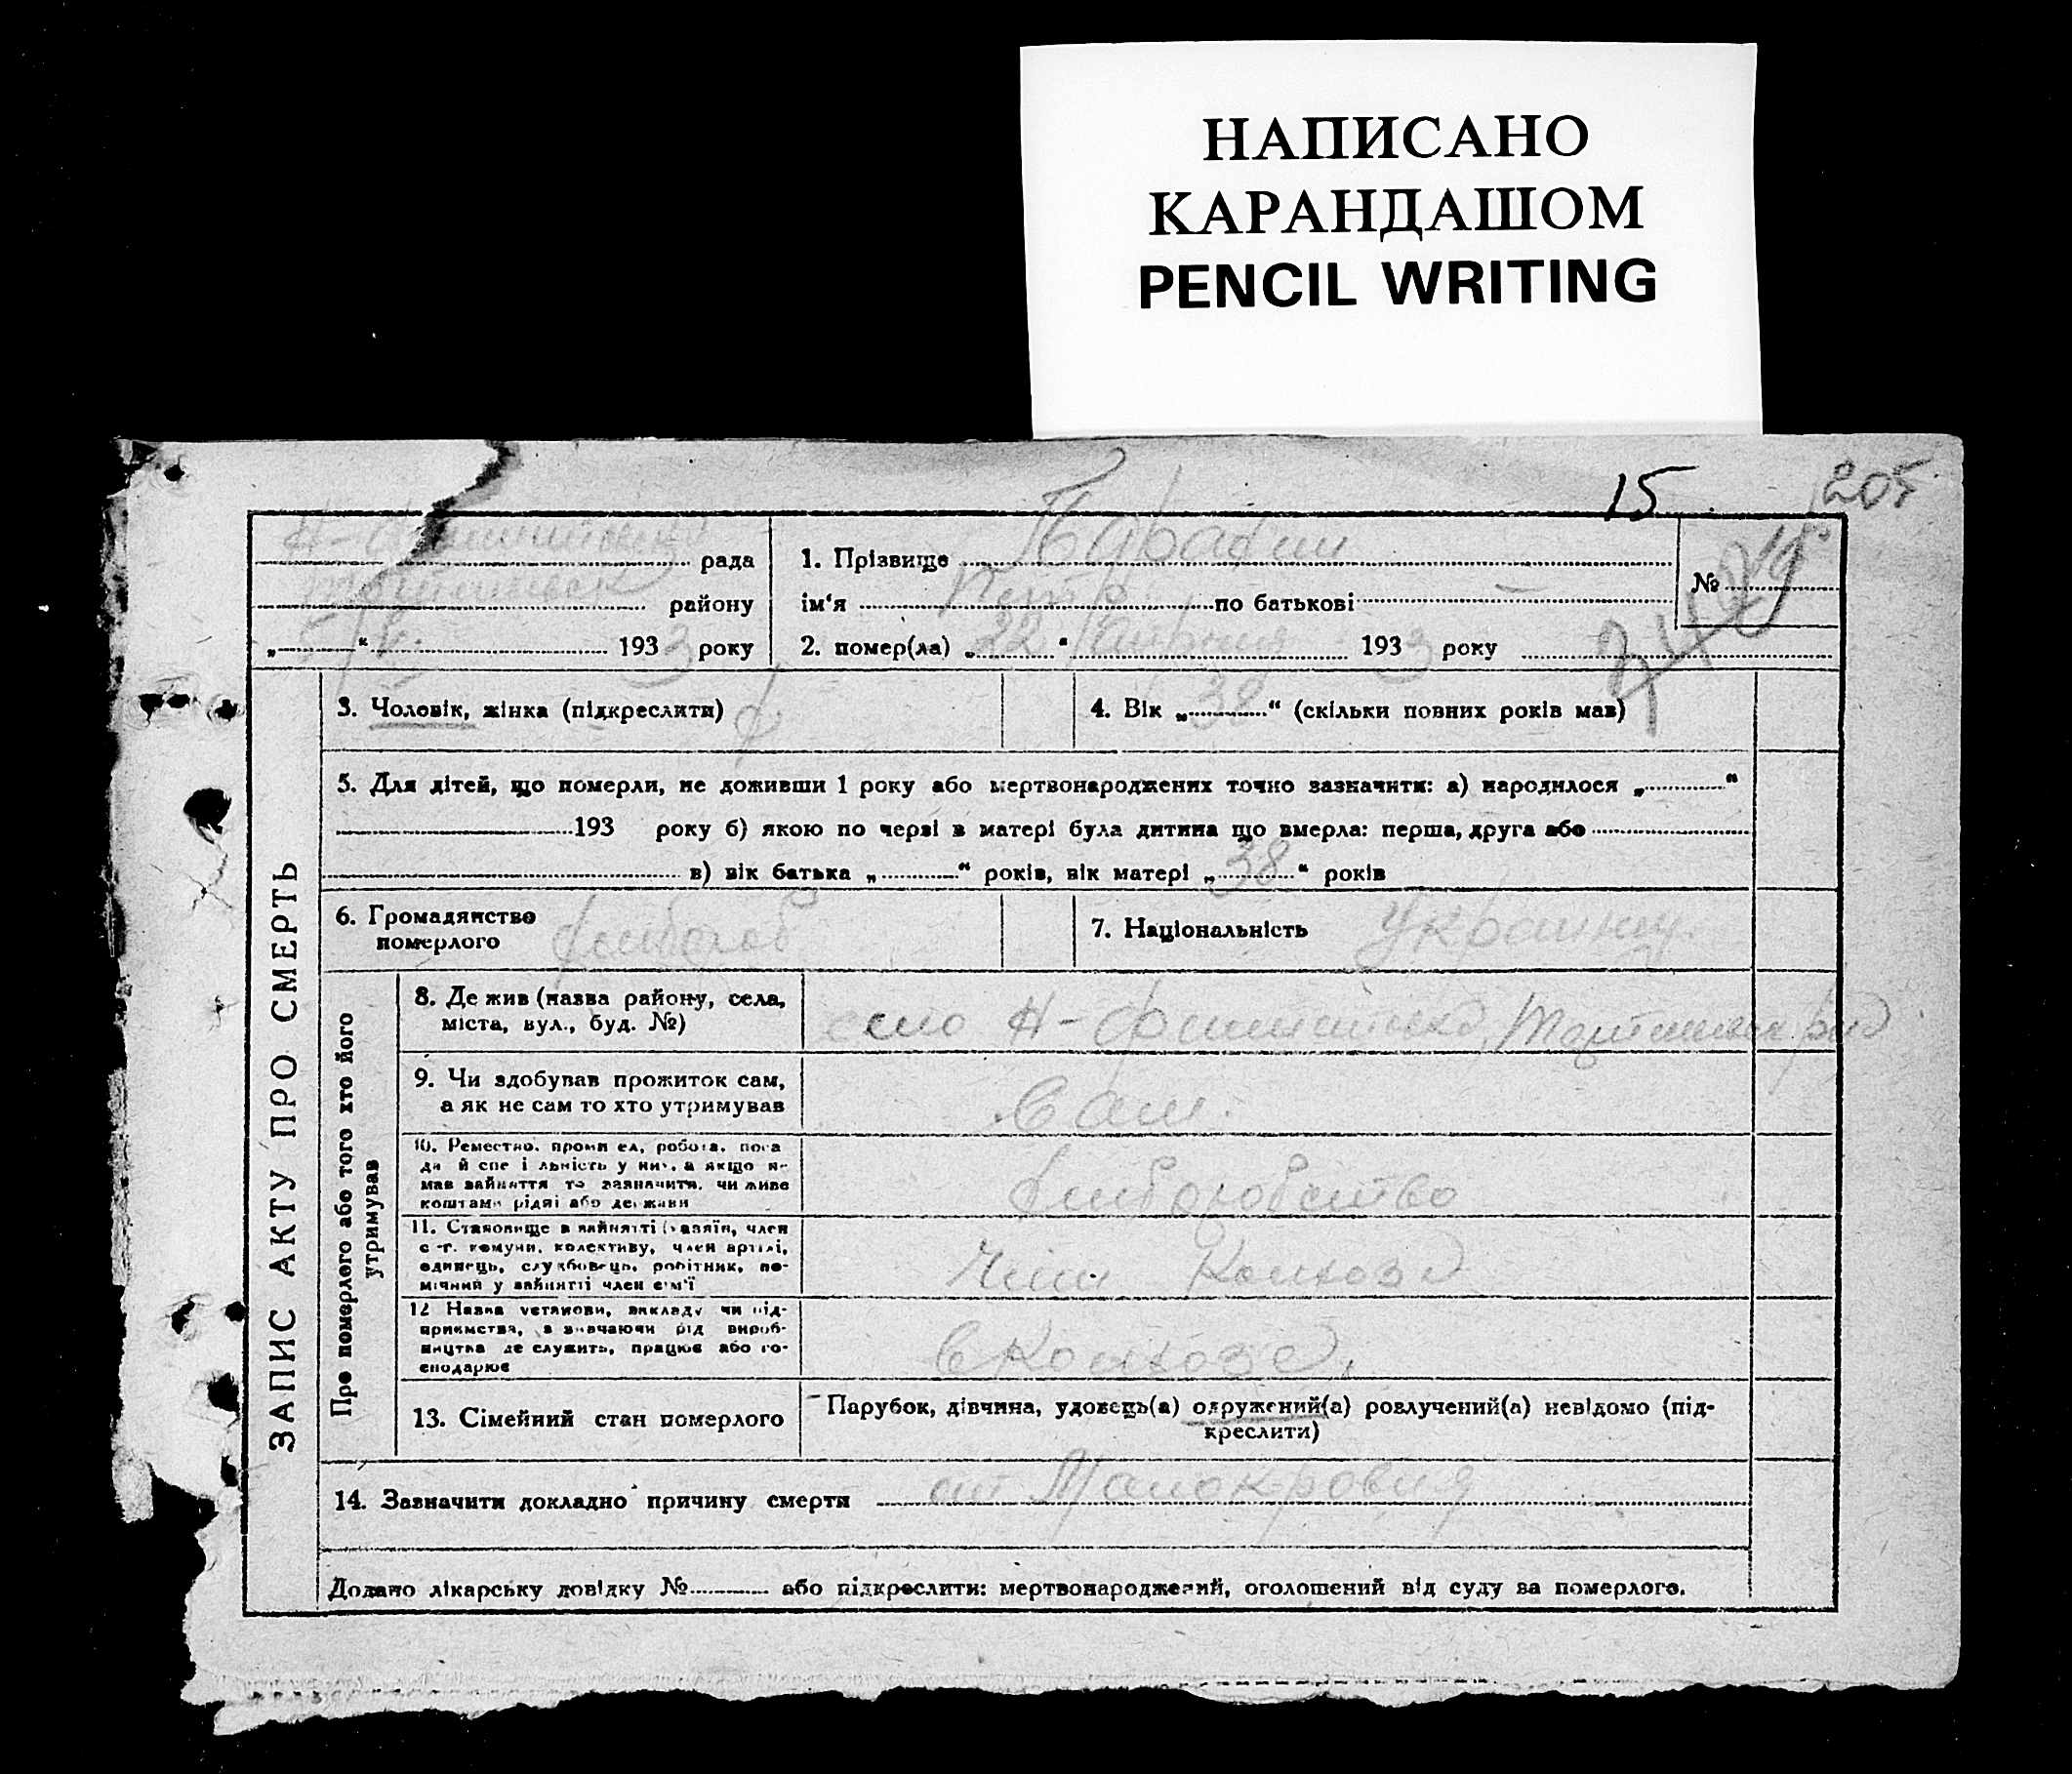 НАПИСАНО
КАРАНДАШОМ
PENCIL WRITING
15
205
рада
району
193 3 року
1. Прізвище
ім'я Петр по батькові —
2. помер(ла) „ 22 “ Апреля 193 3 року
№
ЗАПИС АКТУ ПРО СМЕРТЬ
3. Чоловік, жінка (підкреслити)
4. Вік „ 38 “ (скільки повних років мав)
5. Для дітей, що померли, не доживши 1 року або мертвонароджених точно зазначити: а) народилося „ “
193 року б) якою по черзі в матері була дитина що вмерла: перша, друга або
в) вік батька „ “ років, вік матері „ 38 “ років
6. Громадянство
померлого
7. Національність Украинец
Про померлого або того хто його
утримував
8. Де жив (назва району, села,
міста, вул., буд. №)
село
9. Чи здобував прожиток сам,
а як не сам то хто утримував
Сам.
10. Ремество, промисел, робота, поса
да й спеціяльність у них, а якщо не
мав зайняття то зазначити, чи живе
коштами рідні або держави
Хлиборобство
11. Становище в зайнятті (хазяїн, член
с-г. комуни, колективу, член артілі,
одинець, службовець, робітник, по-
мічний у зайнятті член сім'ї
Член Колхоза
12 Назва установи, закладу чи під-
приємства, зазначаючи рід вироб-
ництва де служить, працює або го-
сподарює
в Колхозе
13. Сімейний стан померлого
Парубок, дівчина, удовець(а) одружений(а) розлучений(а) невідомо (під-
креслити)
14. Зазначити докладно причину смерти от Малокровия
Додано лікарську довідку № або підкреслити: мертвонароджений, оголошений від суду за померлого.